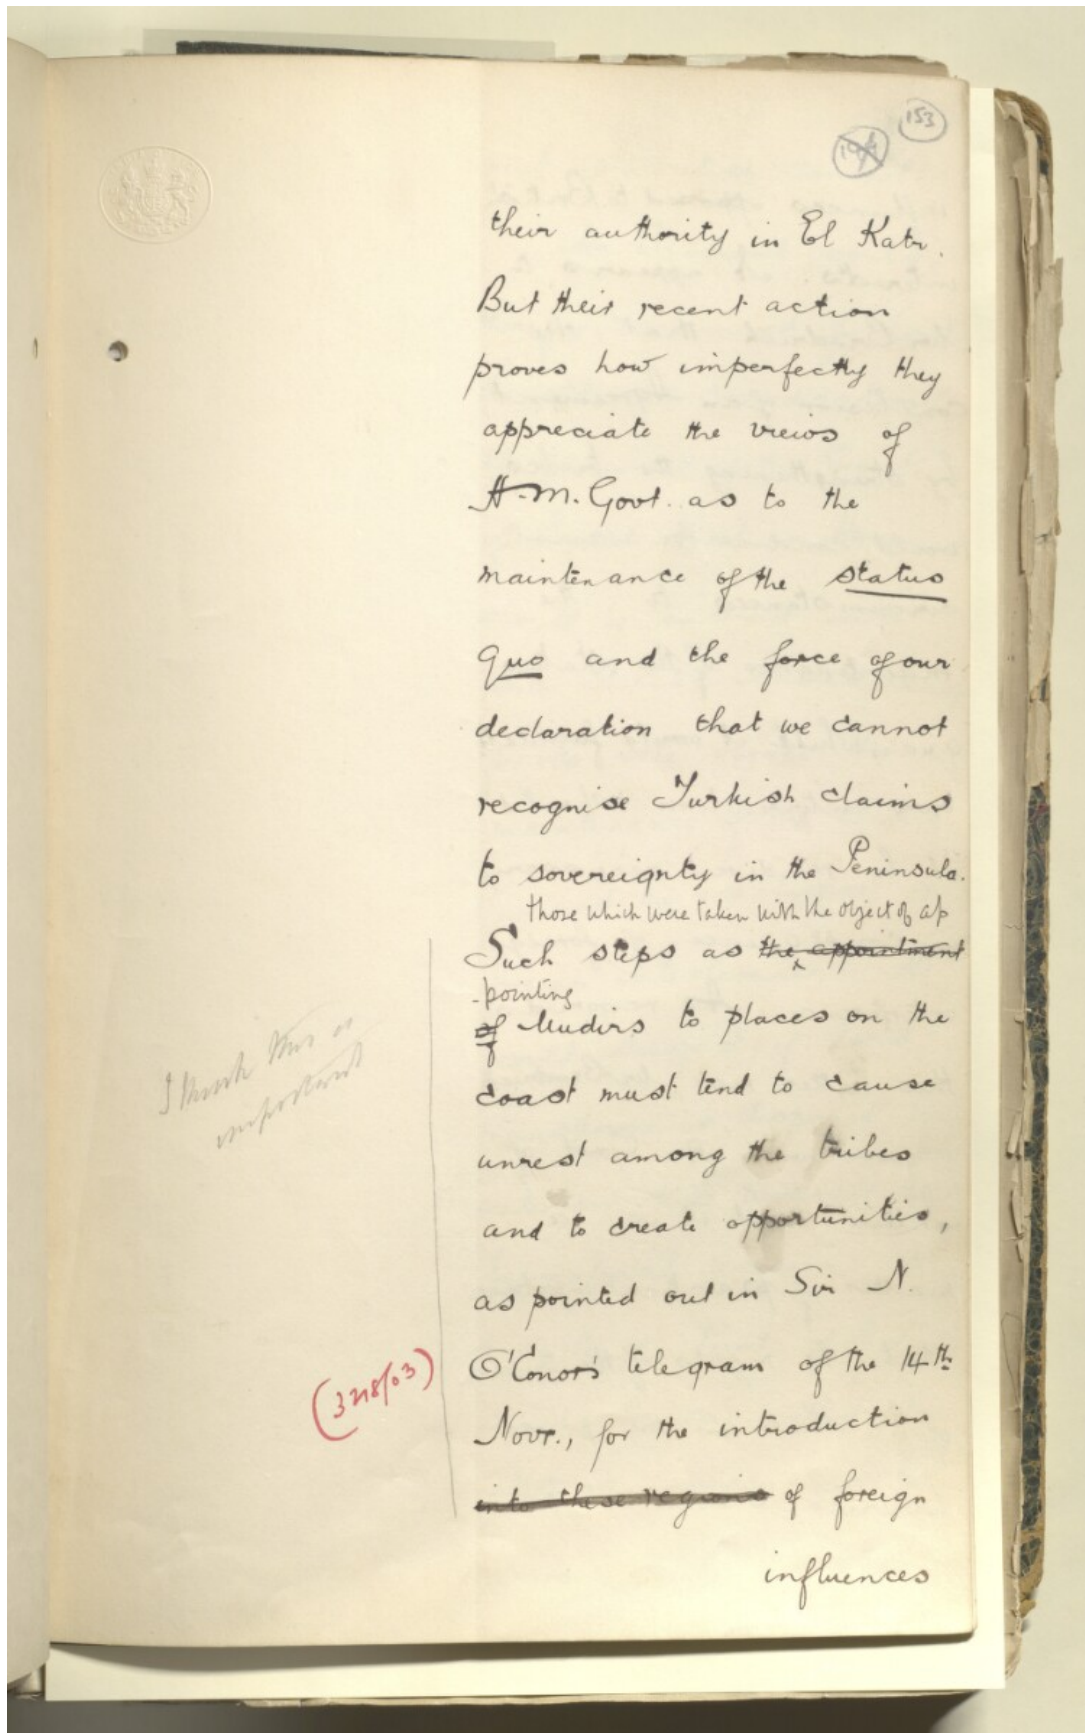 153
their authority in El Katr.
But their recent action
proves how imperfectly they
appreciate the views of
H.M. Govt. as to the
maintenance of the status
quo and the force of our
declaration that we cannot
recognise Turkish claims
to sovereignty in the Peninsula.
those which were taken with the object of ap
Such steps as the appointment
-pointing
of Mudirs to places on the
coast must tend to cause
unrest among the tribes
and to create opportunities,
as pointed out in Sir N.
O'Conor's telegram of the 14th
Novr., for the introduction
into these regions of foreign
influences
I think this is
important